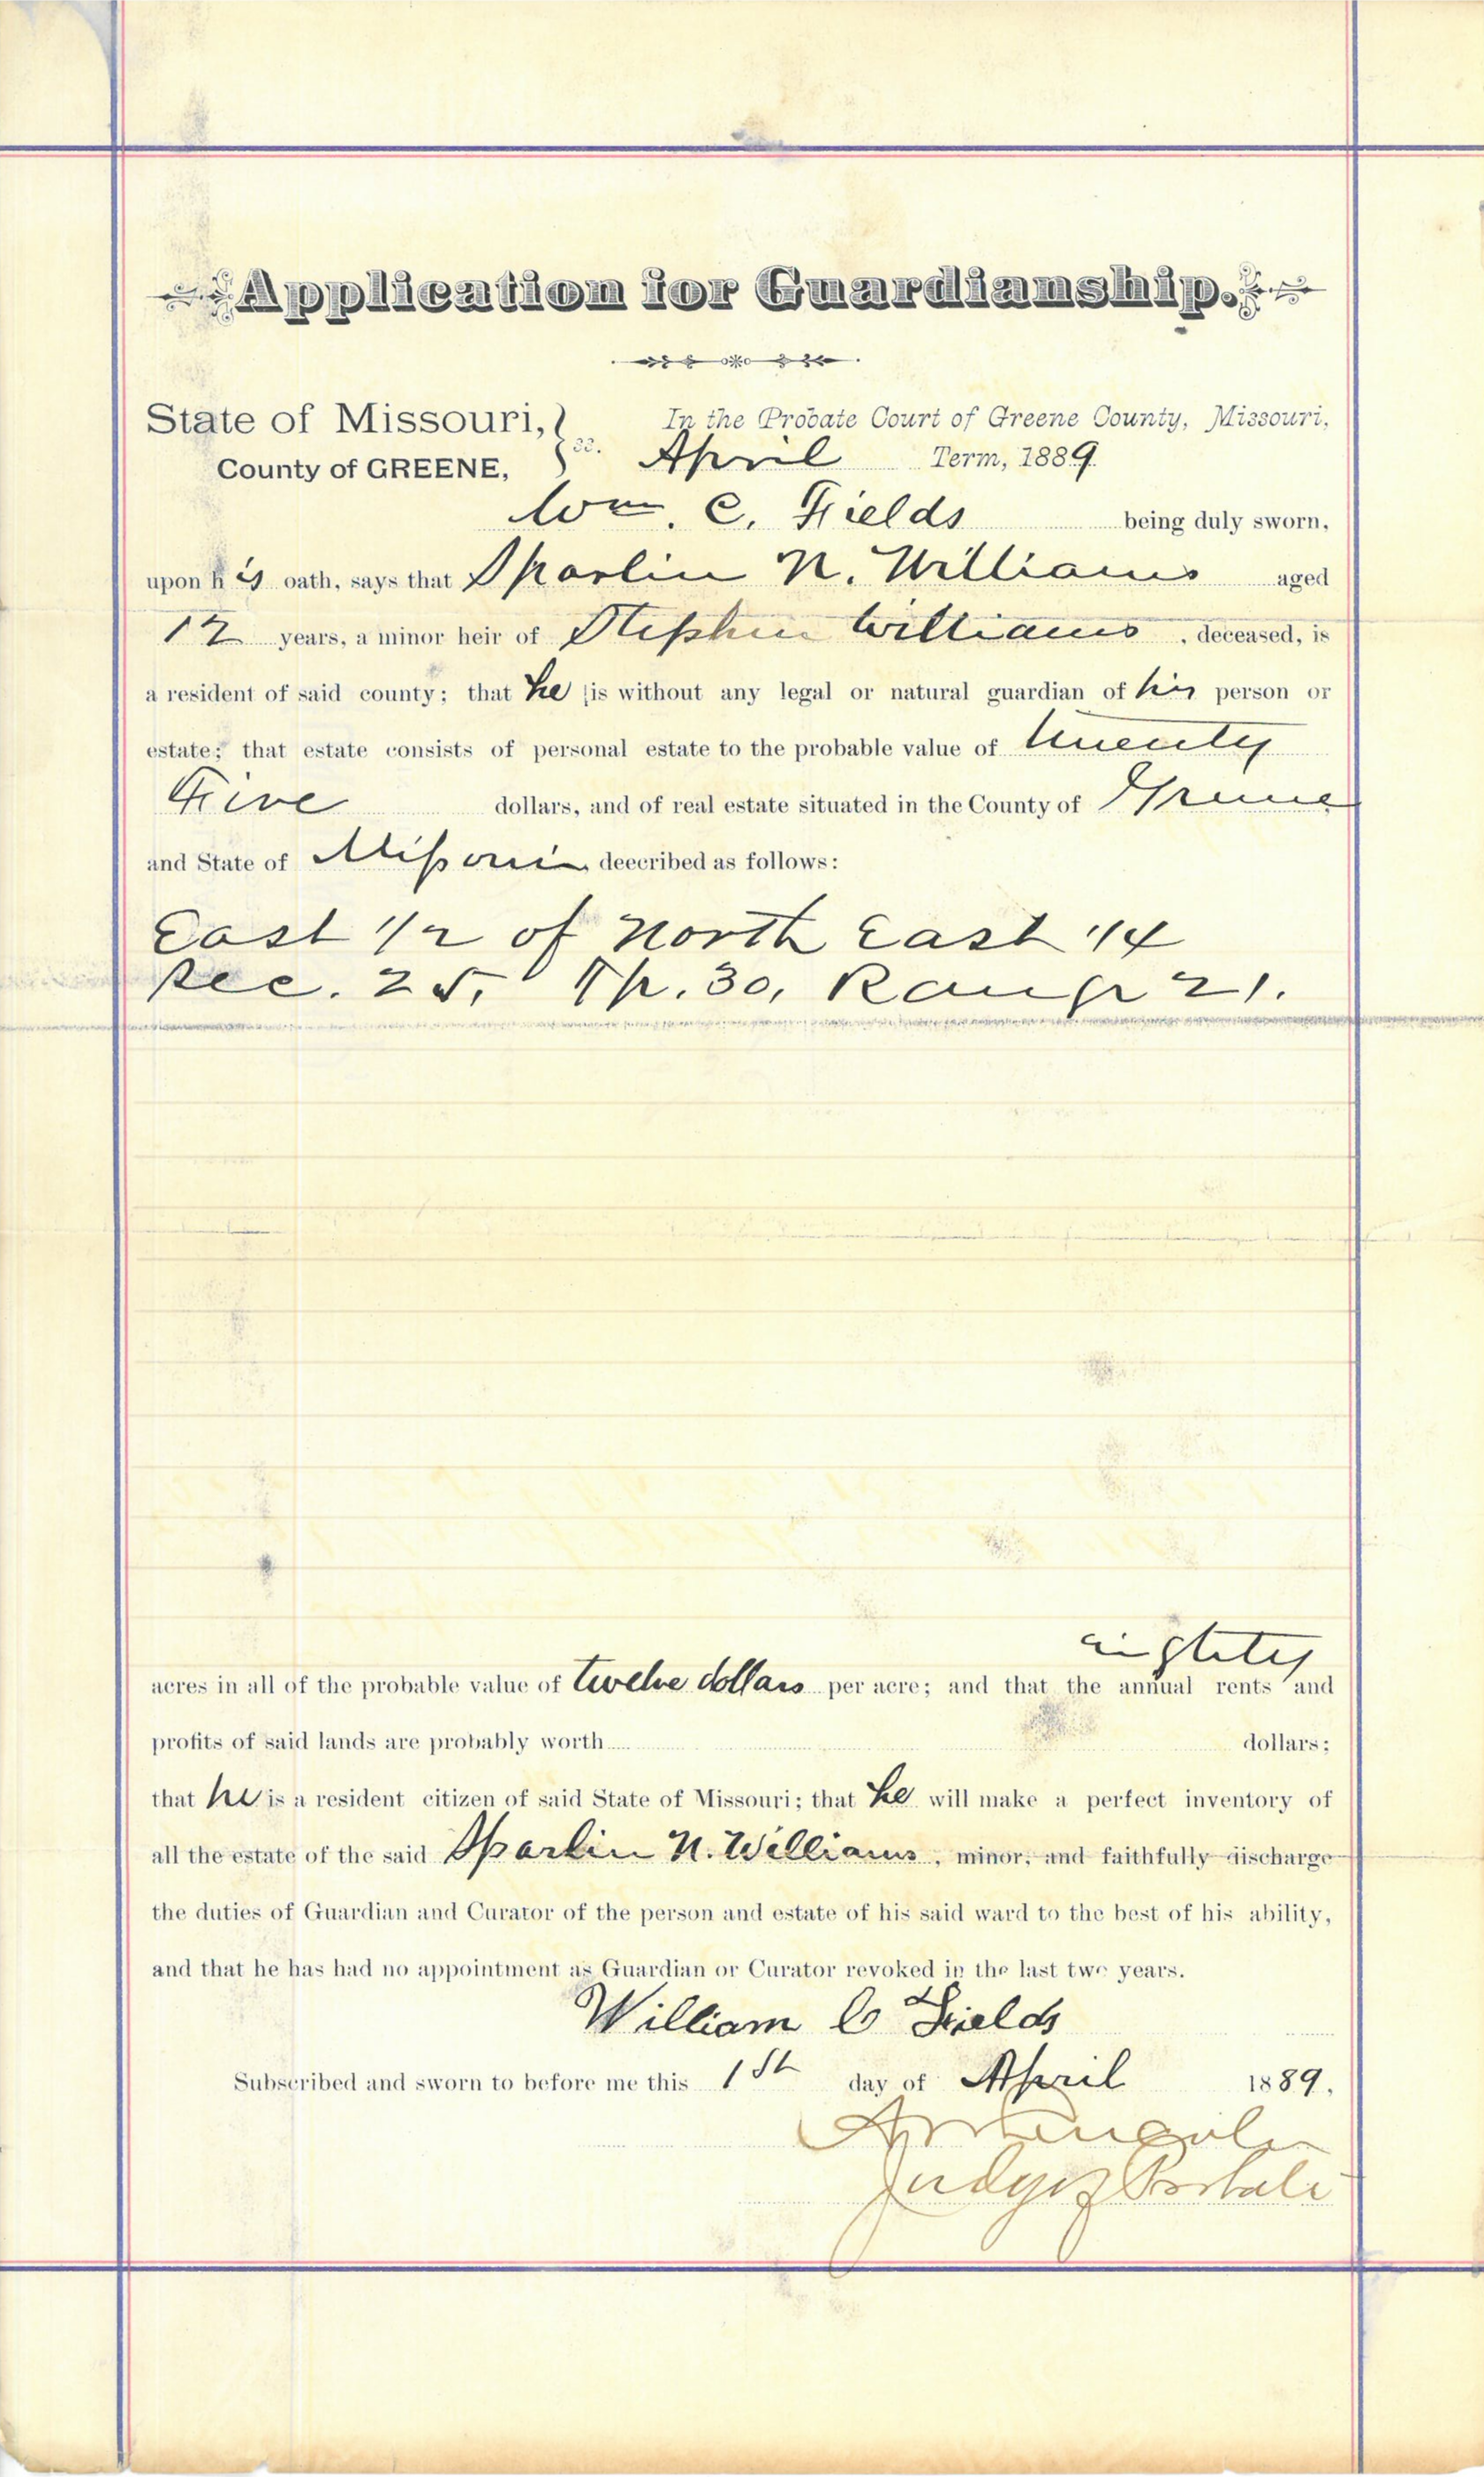 Application for Guardianship.
State of Missouri, } ss. In the Probate Court of Greene County, Missouri,
County of GREENE, April Term, 1889.
Wm. C. Fields being duly sworn,
upon his oath, says that Sparlin N. Williams aged
12 years, a minor heir of Stephen Williams, deceased, is
a resident of said county; that he is without any legal or natural guardian of his person or
estate; that estate consists of personal estate to the probable value of twenty
Five dollars, and of real estate situated in the County of Greene
and State of Missouri deecribed as follows:
East 1/2 of North East 1/4
Sec. 25, Tp. 30, Range 21.
eighty
acres in all of the probable value of twelve dollars per acre; and that the annual rents and
profits of said lands are probably worth dollars;
that he is a resident citizen of said State of Missouri; that he will make a perfect inventory of
all the estate of the said Sparlin N. Williams, minor, and faithfully discharge
the duties of Guardian and Curator of the person and estate of his said ward to the best of his ability,
and that he has had no appointment as Guardian or Curator revoked in the last two years.
William C Fields
Subscribed and sworn to before me this 1st day of April 1889.
Judge of Probate